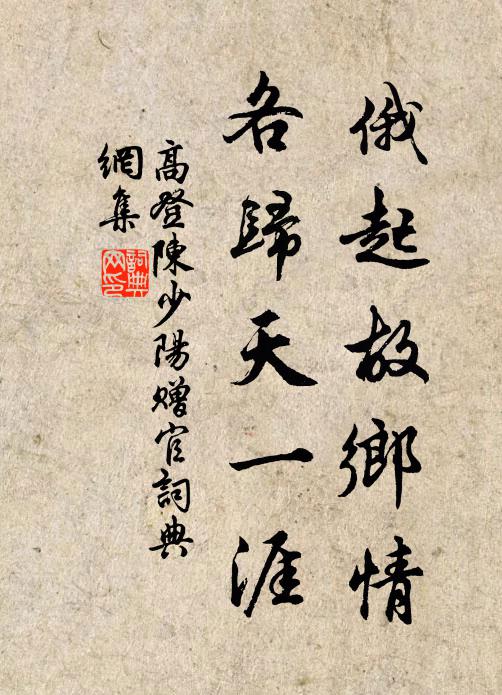 俄起故鄉情
各歸天一涯
高登陳少陽贈官詞典
網集
詞典
网印